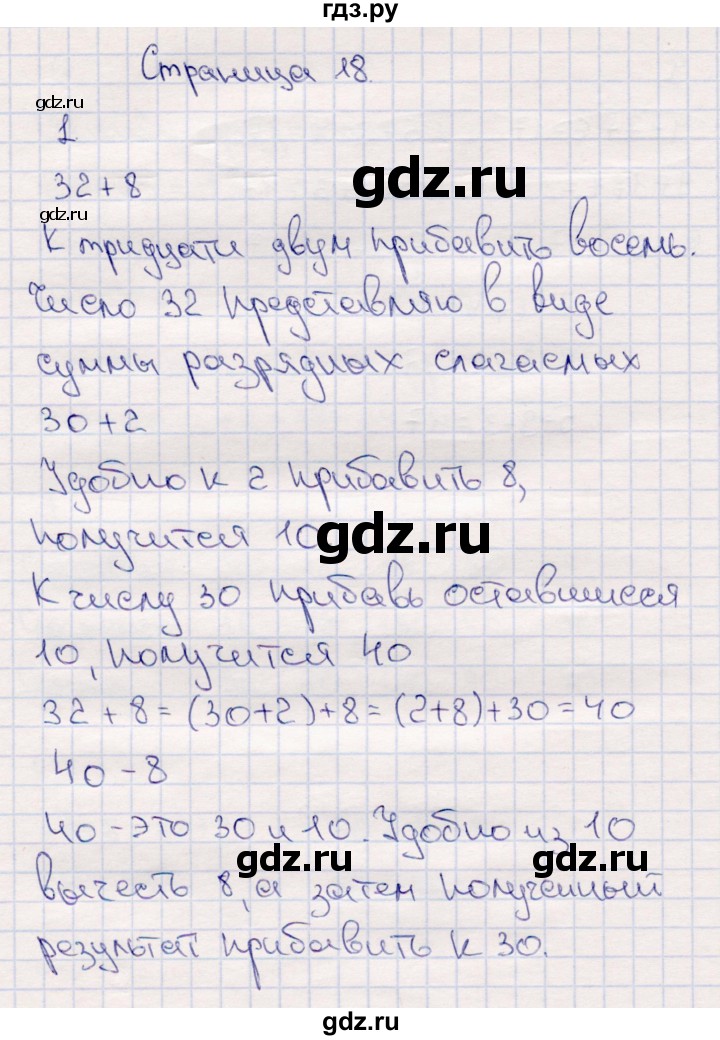 гдз.ру
Страница 18.
gdz.ru
1
gdz.ru
32+8
gdz.ru
К тридцати двум прибавить восемь.
Число 32 представляю в виде
суммы разрядных слагаемых
30+2
Удобно к 2 прибавить 8,
получится 10
gdz.ru
К числу 30 прибавь оставшиеся
10, получится 40
32+8=(30+2)+8=(2+8)+30=40
40-8
40-это 30 и 10. Удобно из 10
gdz.ru
gdz.ru
вычесть 8, а затем полученный
результат прибавить к 30.
gdz.ru